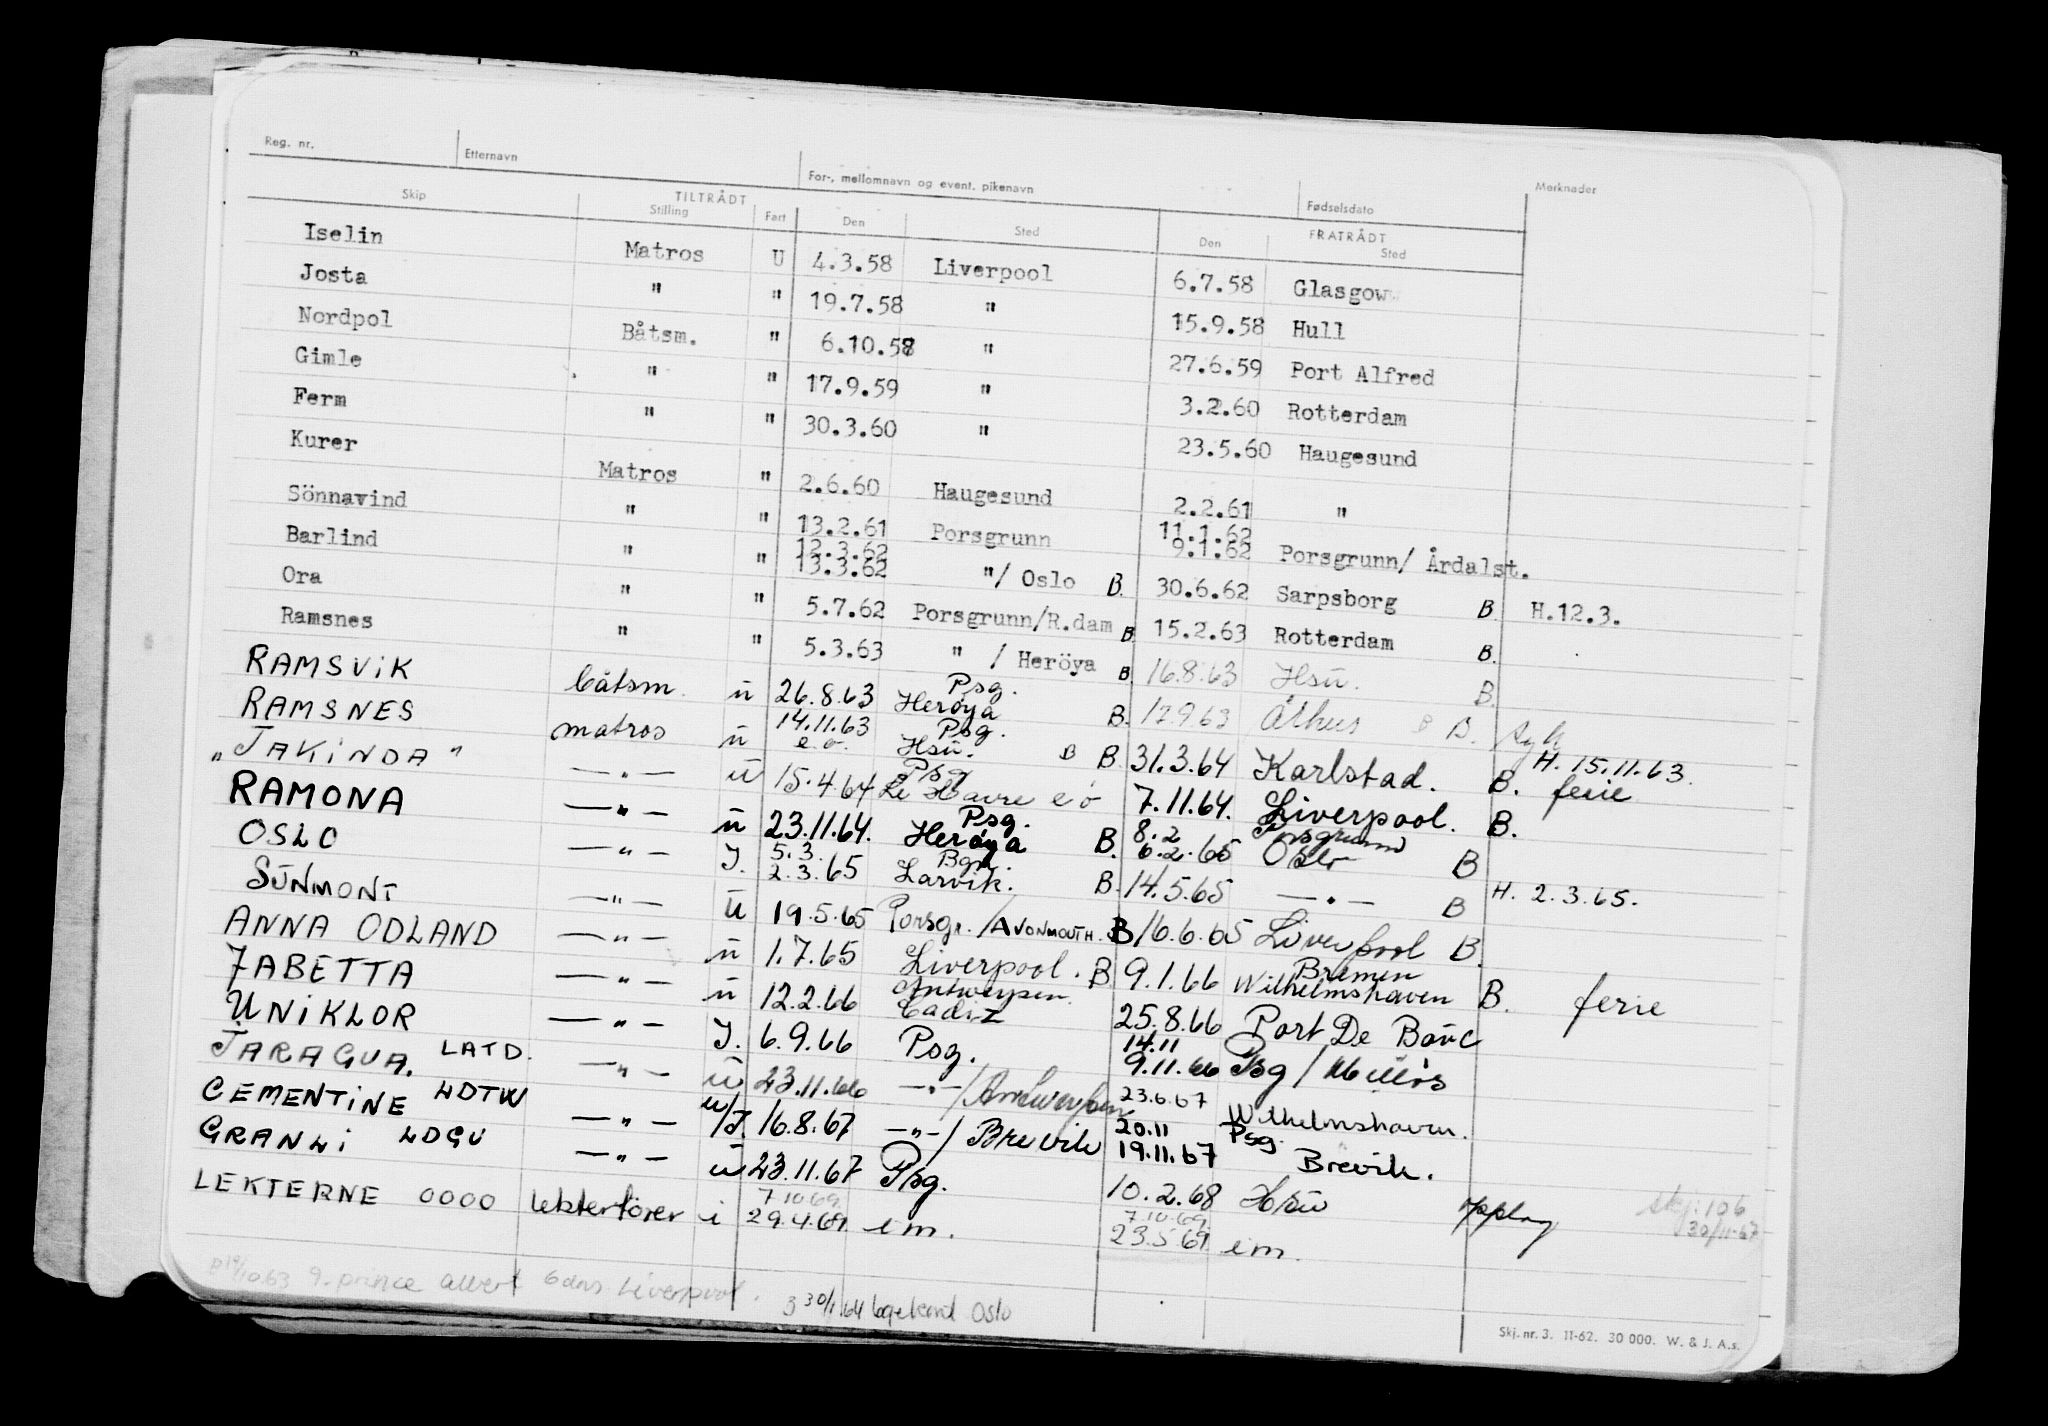 Reg. nr. Etternavn For-, mellomnavn og event. pikenavn Fødselsdato Merknader
TILTRÅDT FRATRÅDT
Skip Stilling Fart Den Sted Den Sted
Iselin Matros U 4.3.58 Liverpool 6.7.58 Glasgow
Josta " " 19.7.58 " 15.9.58 Hull
Nordpol Båtsm. " 6.10.58 " 27.6.59 Port Alfred
Gimle " " 17.9.59 " 3.2.60 Rotterdam
Ferm " " 30.3.60 " 23.5.60 Haugesund
Kurer Matros " 2.6.60 Haugesund 2.2.61 "
Sönnavind " " 13.2.61 Porsgrunn 11.1.62 9.1.62 Porsgrunn/ Årdalst.
Barlind " " 12.3.62 13.3.62 "/ Oslo B. 30.6.62 Sarpsborg B H.12.3.
Ora " " 5.7.62 Porsgrunn/R.dam B. 15.2.63 Rotterdam B.
Ramsnes " " 5.3.63 " / Heröya B. 16.8.63 Hsu. B
RAMSVIK båtsm. u 26.8.63 Psg. Herøya B. 17.9.63 B B. syk
RAMSNES matros u 14.11.63 e.o. Psg. Hsu. B B. 31.3.64 Karlstad. B. H. 15.11.63. ferie
"JAKINDA" —"— u 15.4.64 Psg Le Havre e o 7.11.64. Liverpool. B.
RAMONA —"— u 23.11.64. Psg. Herøya B. 8.2 6.2.65 Porsgrunn Oslo B
OSLO —"— J. 5.3. 2.3.65 Bgn. Larvik. B. 14.5.65 —"— B H. 2.3.65.
SUNMONT —"— u 19.5.65 Porsgr./AVONMOUTH. B 16.6.65 Liverpool B.
ANNA ODLAND —"— u 1.7.65 Liverpool. B 9.1.66 Bremen Wilhelmshaven B. ferie
JABETTA —"— u 12.2.66 Antwerpen Cadiz 25.8.66 Port De Bouc
UNIKLOR —"— J. 6.9.66 Psg. 14.11 9.11.66 Psg /
JARAGUA. LATD. —"— u 23.11.66 —"—/Antwerpen 23.6.67 Wilhelmshaven.
CEMENTINE LDTW —"— u/J. 16.8.67 —"—/ Brevik 20.11 19.11.67 Psg. Brevik.
GRANLI LDGU —"— u 23.11.67 Psg. 10.2.68 Hsu skj. 106 30/11-67
LEKTERNE OOOO lekterfører i 7.10.69. 29.4.69. em. 7.10.69. 23.5.69. em.
19/10.63 prince albert Liverpool.
3 30/1.64 Oslo
Skj. nr. 3. 11-62. 30 000. W. & J. A.s.